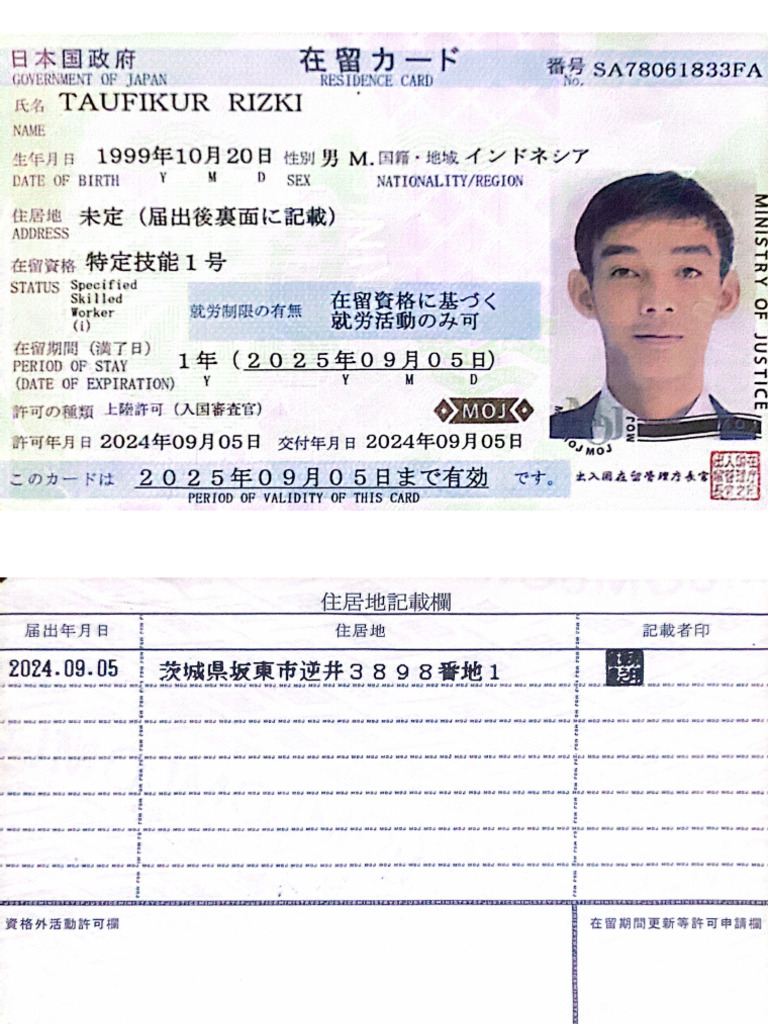 日本国政府 在留カード 番号 SA78061833FA
GOVERNMENT OF JAPAN RESIDENCE CARD No.
氏名 TAUFIKUR RIZKI
NAME
生年月日 1999年10月20日 性別 男 M. 国籍・地域 インドネシア
DATE OF BIRTH Y M D SEX NATIONALITY/REGION
住居地 未定（届出後裏面に記載）
ADDRESS
在留資格 特定技能1号
STATUS Specified
Skilled
Worker
(i)
就労制限の有無 在留資格に基づく
就労活動のみ可
在留期間（満了日） 1年（2025年09月05日）
PERIOD OF STAY
(DATE OF EXPIRATION) Y Y M D
許可の種類 上陸許可（入国審査官）
MOJ
許可年月日 2024年09月05日 交付年月日 2024年09月05日
このカードは 2025年09月05日まで有効 です。
PERIOD OF VALIDITY OF THIS CARD
出入国在留管理庁長官
MINISTRY OF JUSTICE
MOJ
MOJ MOJ MOJ
住居地記載欄
届出年月日 住居地 記載者印
2024.09.05 茨城県坂東市逆井3898番地1
資格外活動許可欄 在留期間更新等許可申請欄